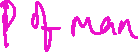 P of man